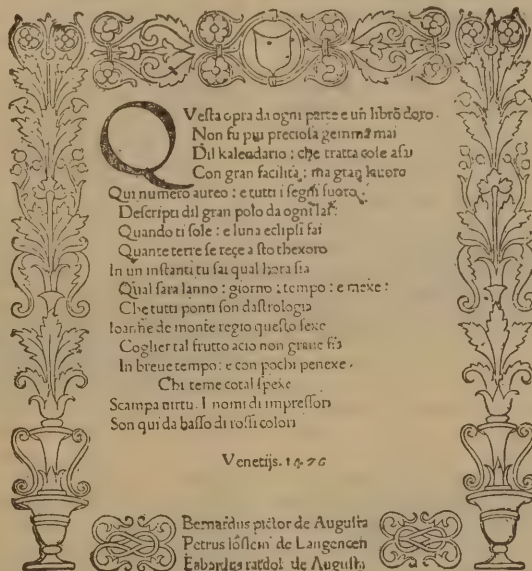 QVesta opra da ogni parte e un libro doro.
Non fu piu preciosa gemma mai
Dil kalendario: che tratta cose asai
Con gran facilita: ma gran lauoro
Qui numero aureo: e tutti i segni fuoro
Descripti dil gran polo da ogni lai:
Quando ti sole: e luna eclipsi fai
Quante terre se rece a sto thexoro
In un instanti tu sai qual hora sia
Qual sara lanno: giorno: tempo: e mexe:
Che tutti ponti son dastrologia
Ioanne de monte regio questo fexe
Coglier tal frutto acio non graue sia
In breue tempo: e con pochi penexe.
Chi teme cotal spexe
Scampa uirtu. I nomi di impressori
Son qui da basso di rossi colori
Venetijs. 1476
Bernardus pictor de Augusta
Petrus löslein de Langencen
Erhardus ratdolt de Augusta